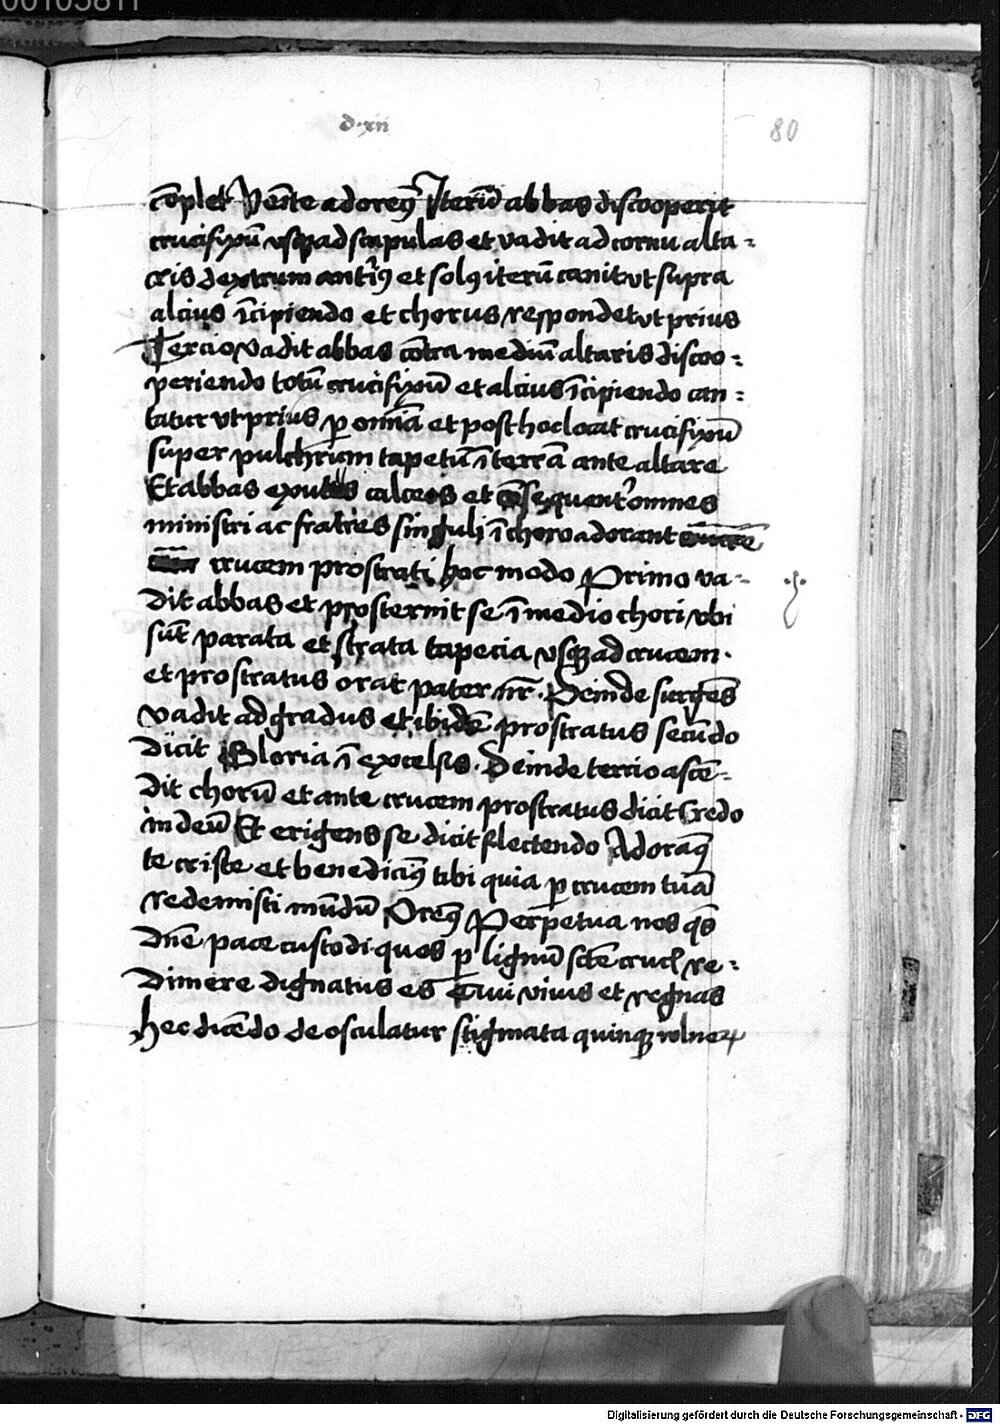 00105811
d·xii
80
cõplet Veĩte adorem9 Iterũ abbas discooperit
crucifixũ vsq3 ad scapulas et vadit ad cornu alta=
ris dextrum anti9 et sol9 iterũ canit vt supra
alcius ĩcipiendo et chorus respondet vt prius
Tercio vadit abbas cõtra mediũ altaris discoo=
periendo totũ crucifixũ et alcius ĩcipiendo can=
tatur vt prius p om̃ia et post hoc locat crucifixũ
super pulchrum tapetũ ĩ terrã ante altare
Et abbas exutus calceis et cõsequent' omnes
ministri ac fratres singuli ĩ choro adorant
crucem prostrati hoc modo Primo va=
dit abbas et prosternit se ĩ medio chori vbi
sũt parata et strata tapecia vsq3 ad crucem.
et prostratus orat pater nr̃. Deinde surgẽs
vadit ad gradus et ibidẽ prostratus secũdo
dicit Gloria ĩ excelsis. Deinde tercio ascẽ=
dit chorũ et ante crucem prostratus dicit Credo
in deũ Et erigens se dicit flectendo Adoram9
te criste et benedicim9 tibi quia p crucem tuã
redemisti mũdũ Orem9 Perpetua nos qs̃
dñe pace custodi quos p lignũ scẽ crucis re=
dimere dignatus es Qui viuis et regnas
hec dicẽdo deosculatur stigmata quinq3 volneꝝ
Digitalisierung gefördert durch die Deutsche Forschungsgemeinschaft - DFG